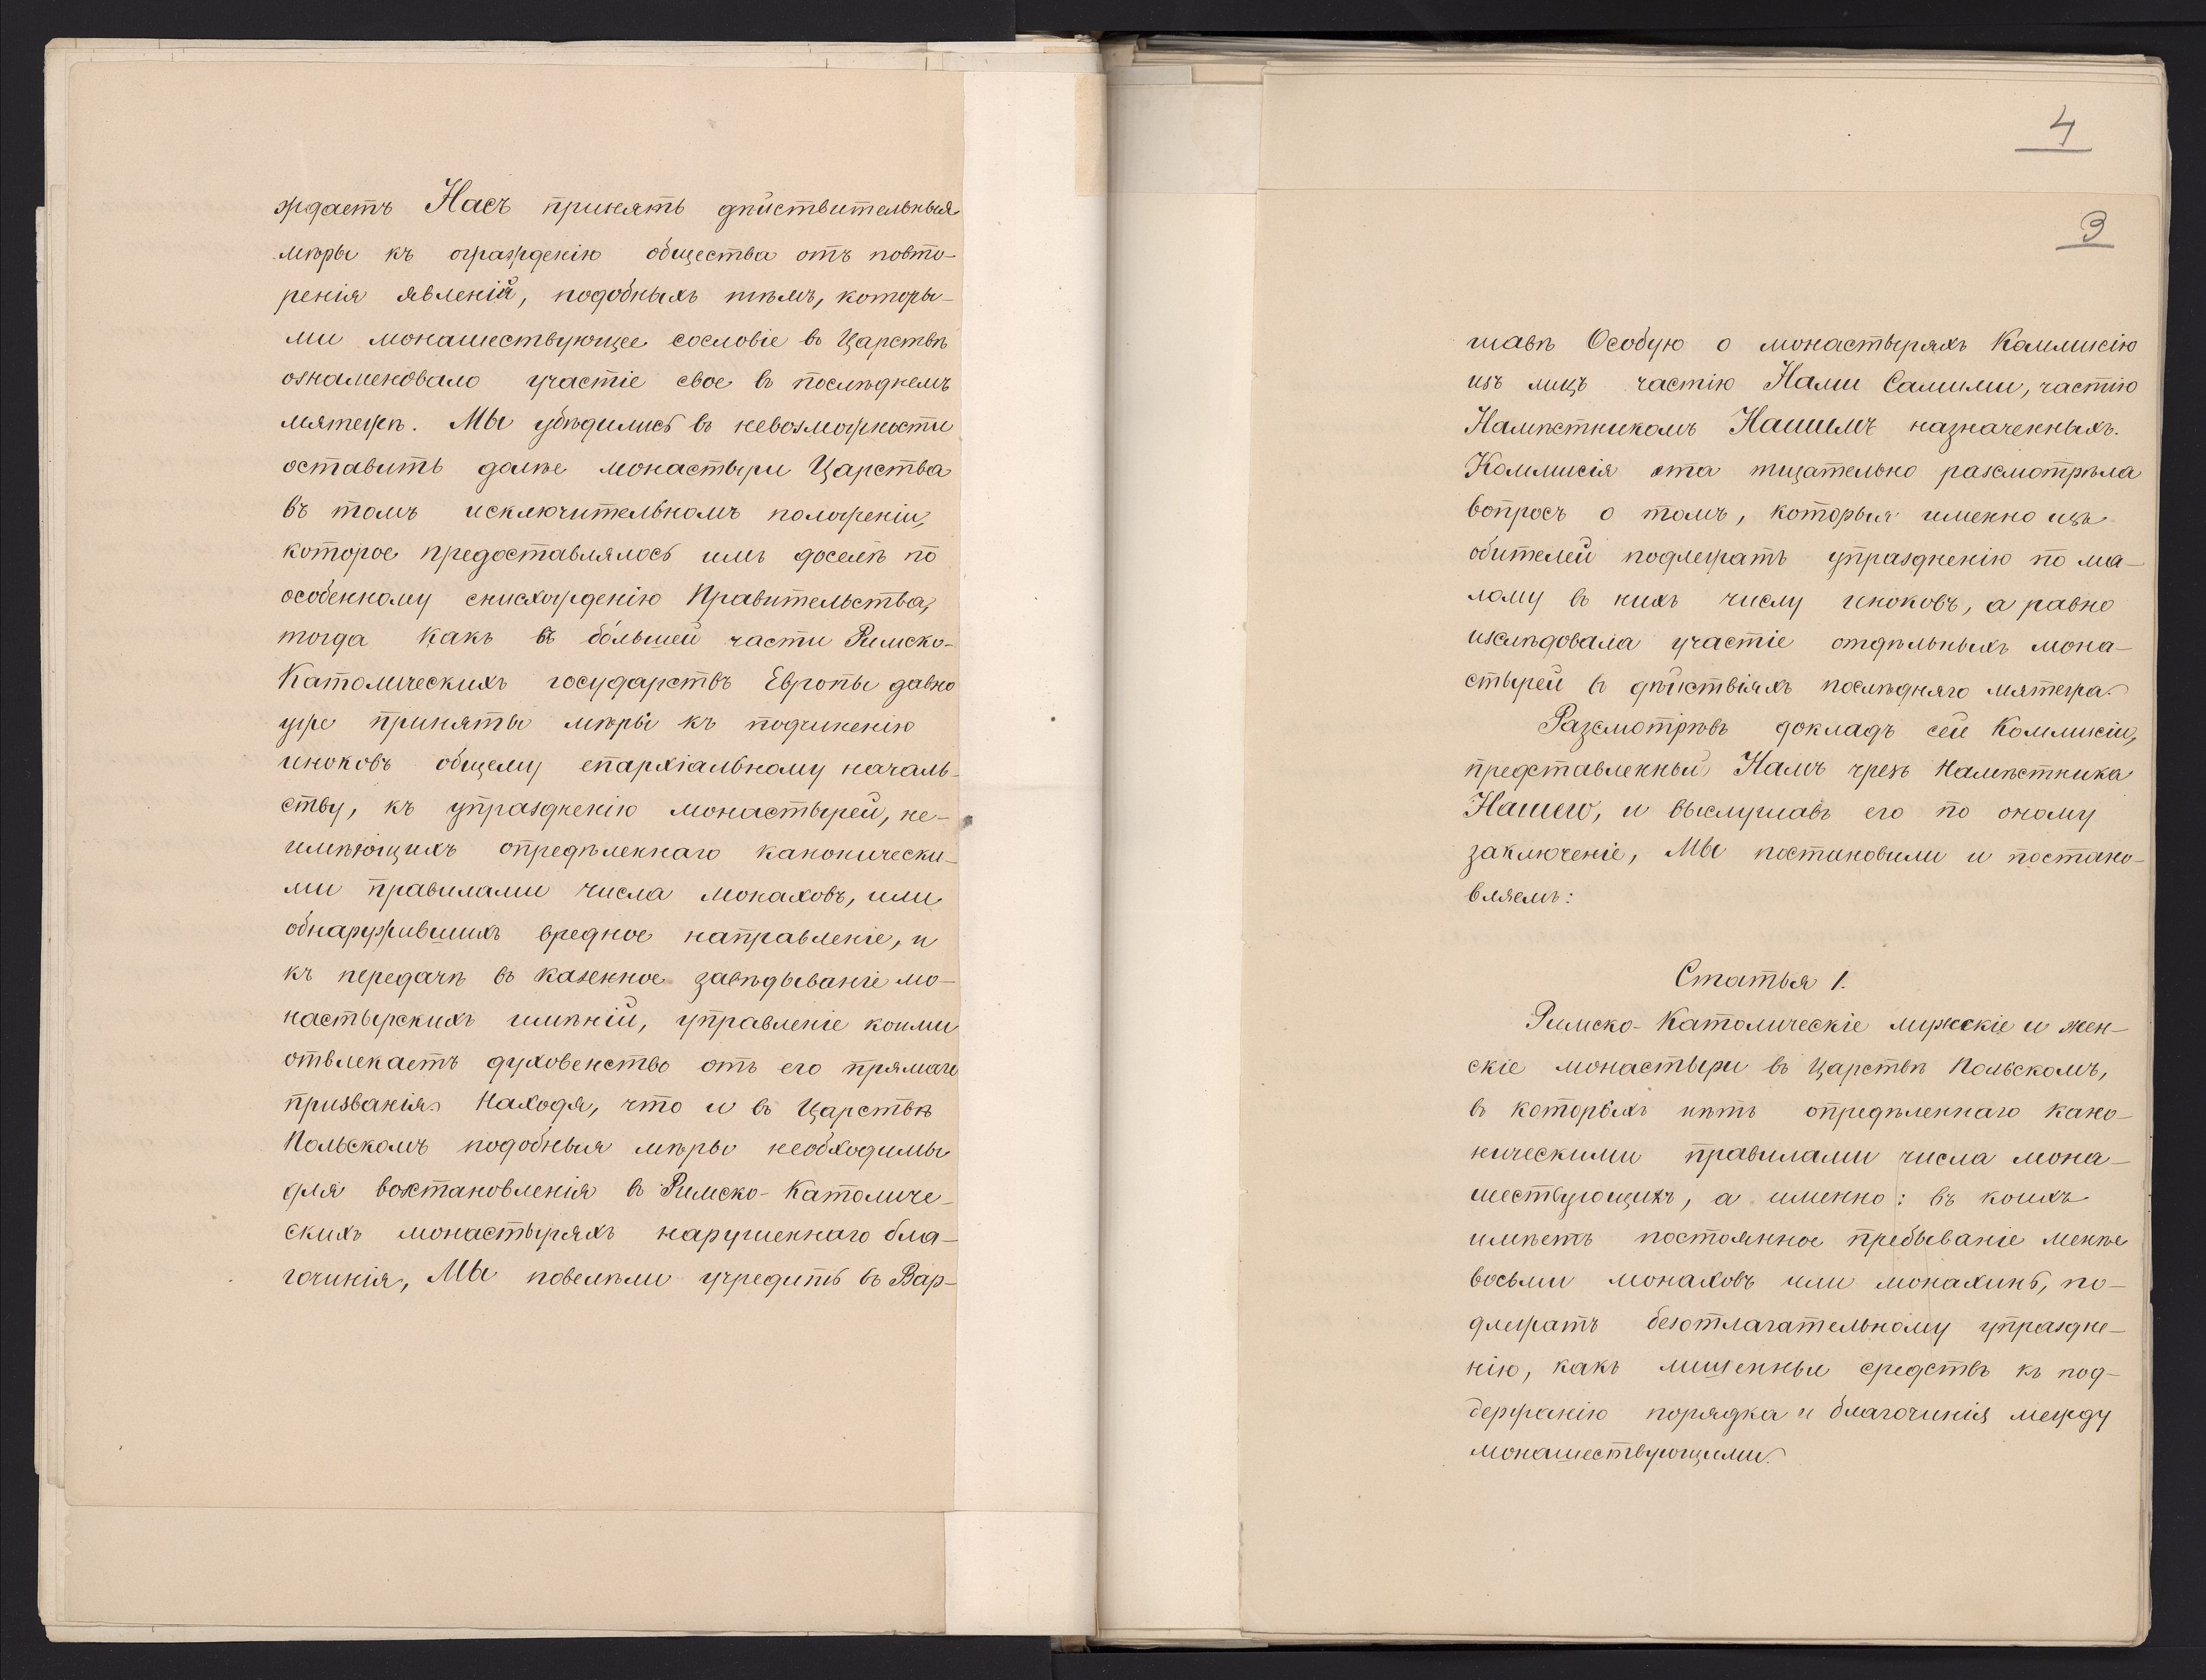 ждаетъ Насъ принять дѣйствительныя
мѣры къ огражденію общества отъ повто-
ренія явленій, подобныхъ тѣмъ, которы-
ми монашествующее сословіе въ Царствѣ
ознаменовало участіе свое въ послѣднемъ
мятежѣ. Мы убѣдились въ невозможности
оставить долѣе монастыри Царства
въ томъ исключительномъ положеніи,
которое предоставлялось имъ доселѣ по
особенному снисхожденію Правительства,
тогда какъ въ бо́льшей части Римско-
Католическихъ государствъ Европы давно
уже приняты мѣры къ подчиненію
иноковъ общему епархіальному началь-
ству, къ упраздненію монастырей, не-
имѣющихъ опредѣленнаго канонически-
ми правилами числа монаховъ, или
обнаружившихъ вредное направленіе, и
къ передачѣ въ казенное завѣдываніе мо-
настырскихъ имѣній, управленіе коими
отвлекаетъ духовенство отъ его прямаго
призванія. Находя, что и въ Царствѣ
Польскомъ подобныя мѣры необходимы
для возстановленія въ Римско-Католиче-
скихъ монастыряхъ нарушеннаго бла-
гочинія, Мы повелѣли учредить въ Вар-
4
3
шавѣ Особую о монастыряхъ Коммисію
изъ лицъ частію Нами Самими, частію
Намѣстникомъ Нашимъ назначенныхъ.
Коммисія эта тщательно разсмотрѣла
вопросъ о томъ, которыя именно изъ
обителей подлежатъ упраздненію по ма-
лому въ нихъ числу иноковъ, а равно
изслѣдовала участіе отдѣльныхъ мона-
стырей въ дѣйствіяхъ послѣдняго мятежа.
Разсмотрѣвъ докладъ сей Коммисіи,
представленный Намъ чрезъ Намѣстника
Нашего, и выслушавъ его по оному
заключеніе, Мы постановили и постано-
вляемъ:
Статья 1.
Римско-Католическіе мужскіе и жен-
скіе монастыри въ Царствѣ Польскомъ,
въ которыхъ нѣтъ опредѣленнаго кано-
ническими правилами числа мона-
шествующихъ, а именно: въ коихъ
имѣетъ постоянное пребываніе менѣе
восьми монаховъ или монахинь, по-
длежатъ безотлагательному упраздне-
нію, какъ лишенные средствъ къ под-
держанію порядка и благочинія между
монашествующими.